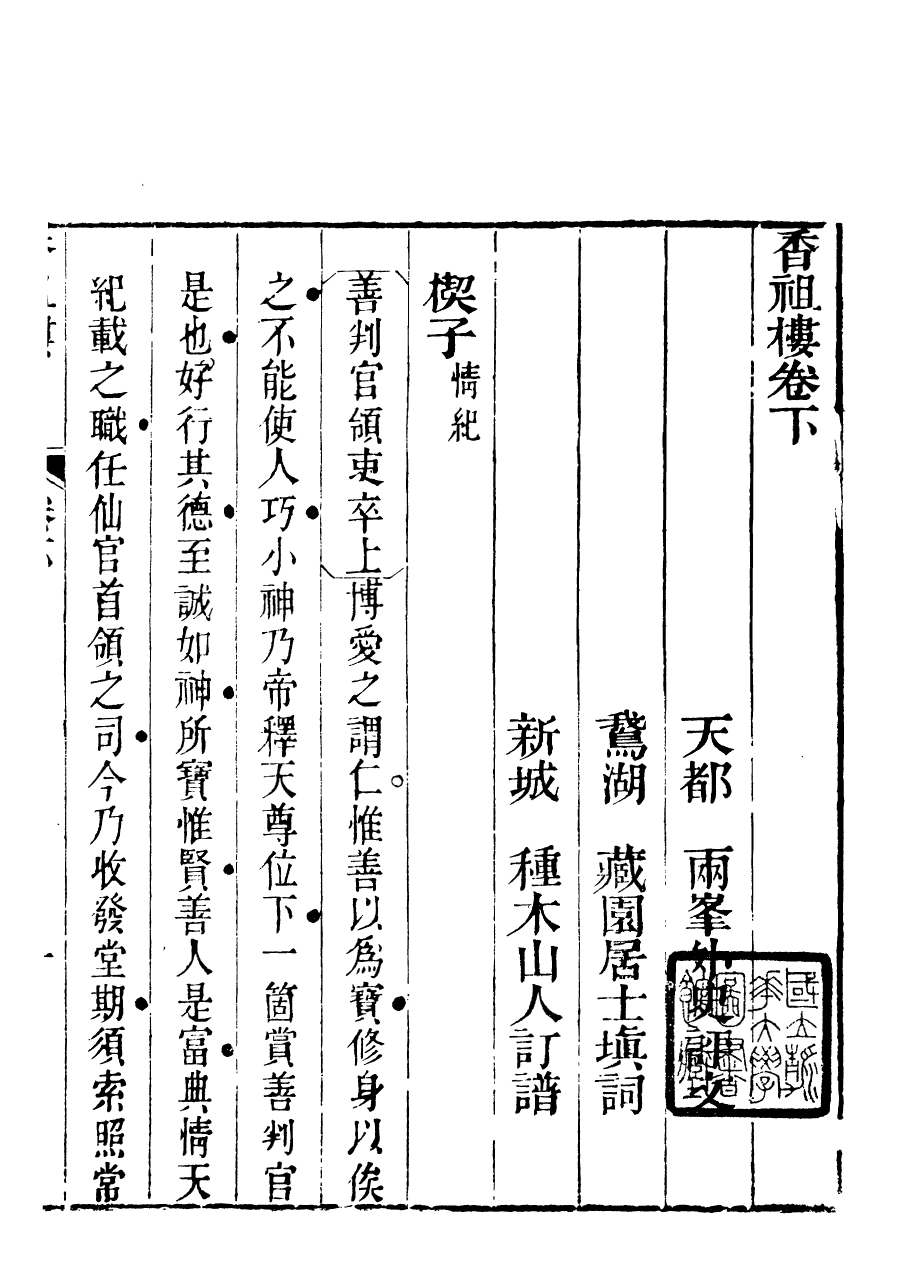 香祖樓卷下
天都 兩峯外史評文
鵞湖 藏園居士塡詞
新城 種木山人訂譜
楔子 情紀
善判官領吏卒上博愛之謂仁惟善以爲寶修身以俟
之不能使人巧小神乃帝釋天尊位下一箇賞善判官
是也好行其德至誠如神所寶惟賢善人是富典情天
紀載之職任仙官首領之司今乃收發堂期須索照常